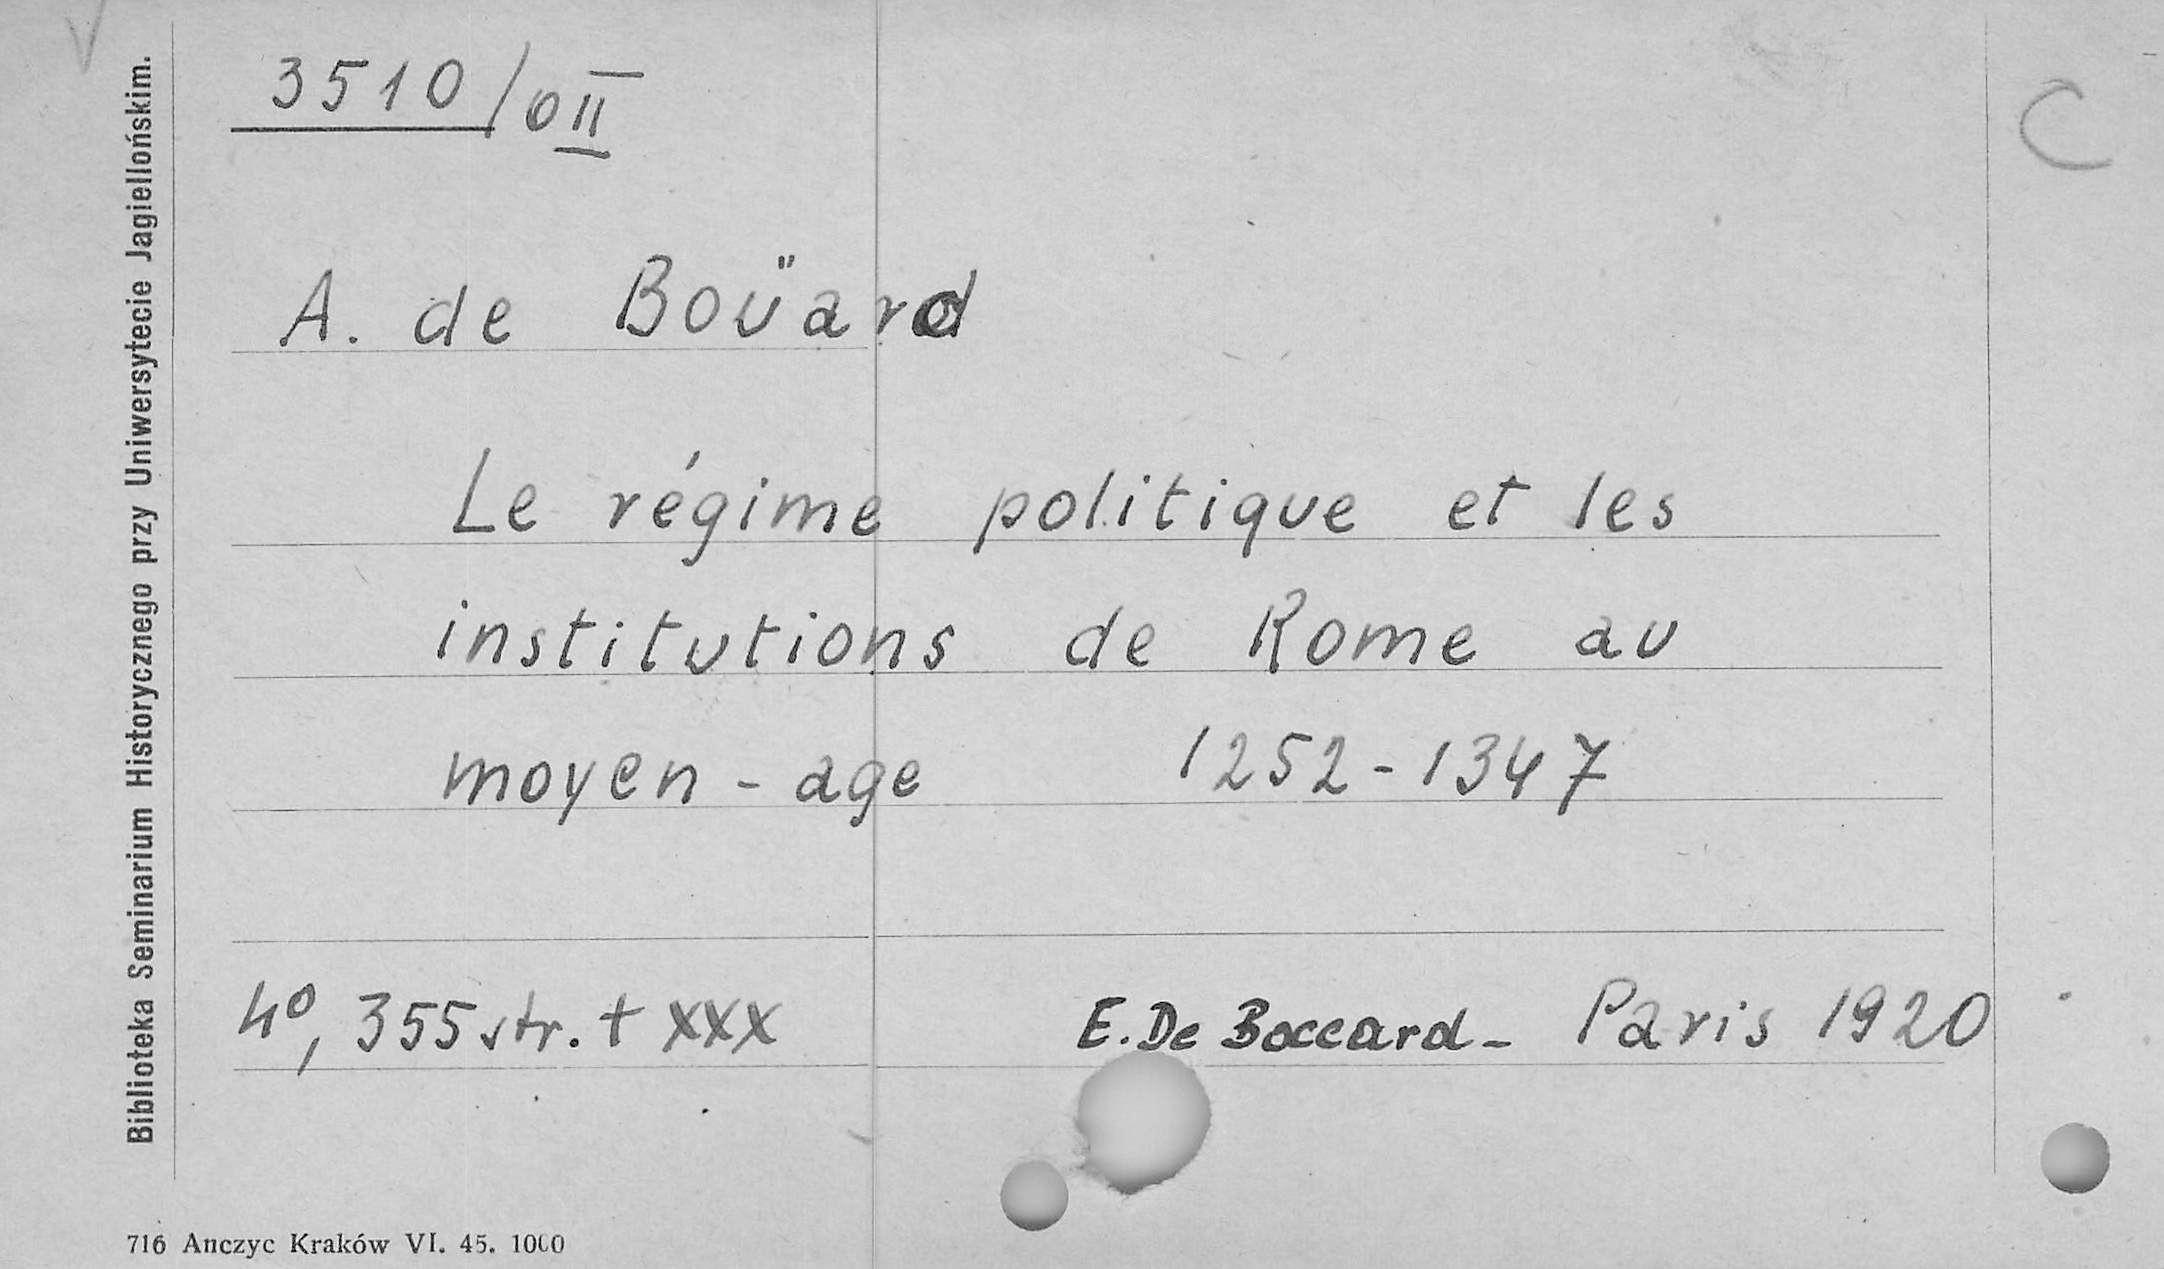 3510/0II
C
A. de Boüard
Le régime politique et les
institutions de Rome au
moyen-age 1252-1347
4°, 355 str. + XXX E. De Boccard - Paris 1920
Biblioteka Seminarium Historycznego przy Uniwersytecie Jagiellońskim.
716 Anczyc Kraków VI. 45. 1000